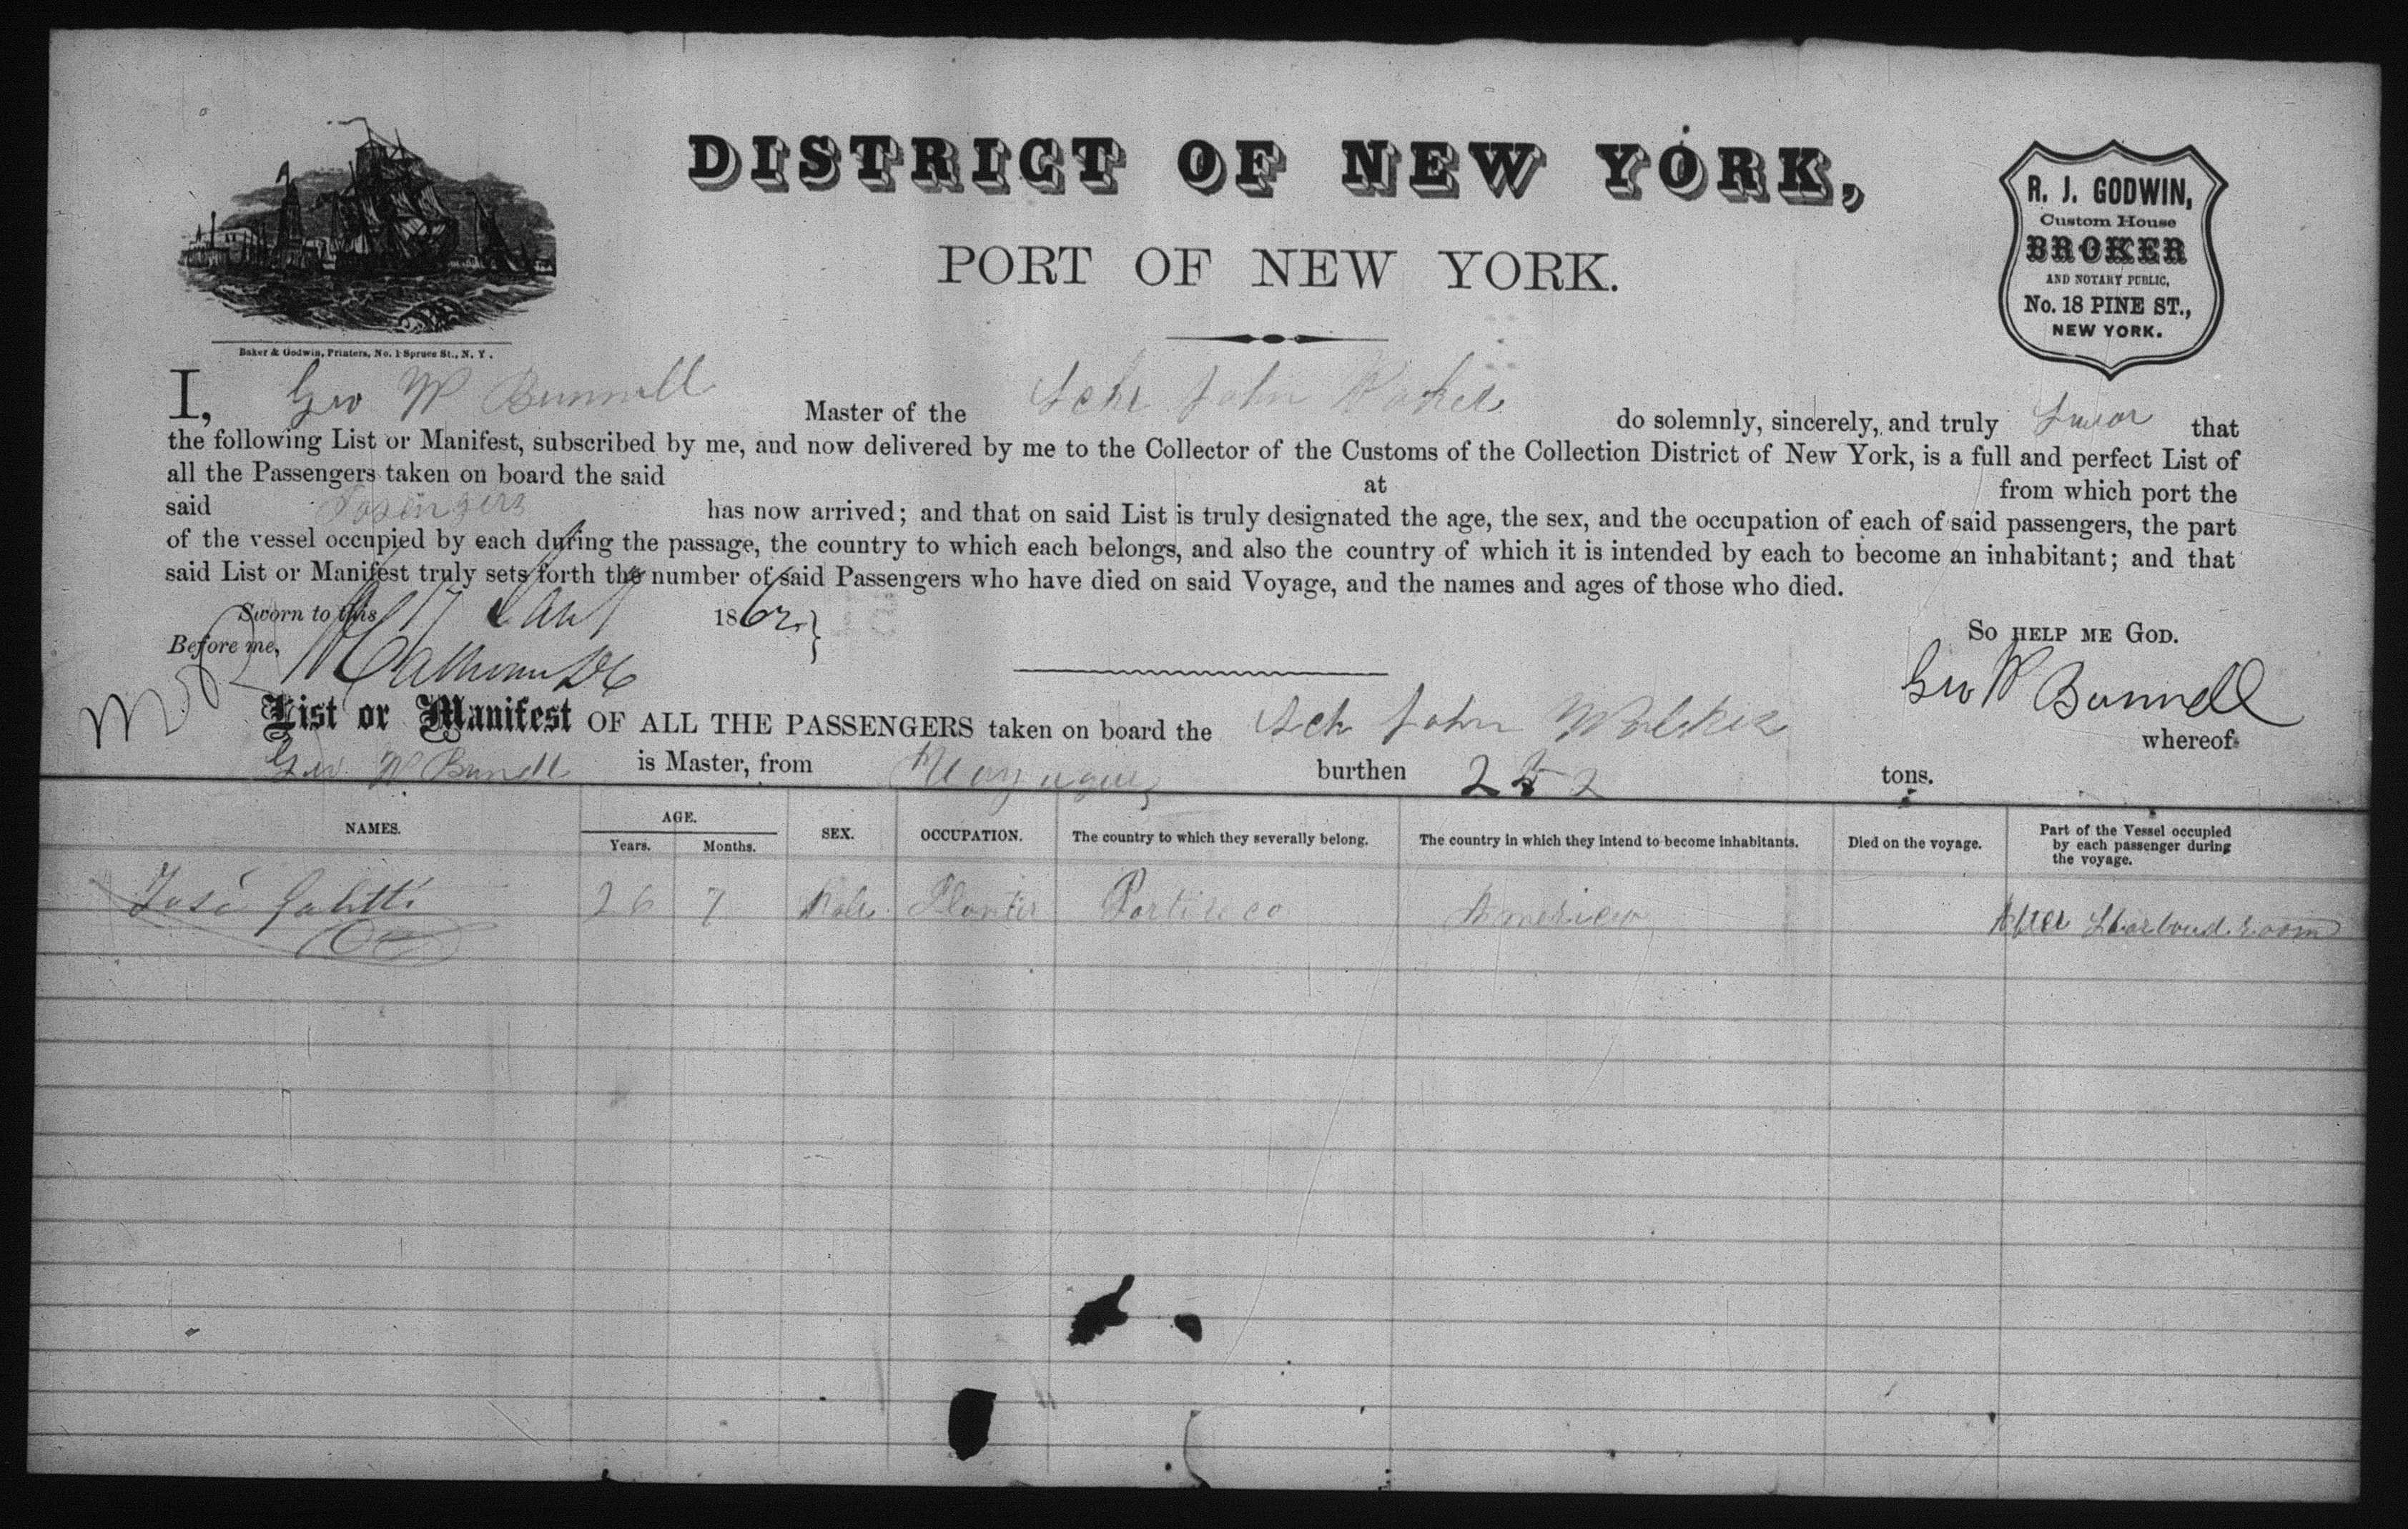 DISTRICT OF NEW YORK,
PORT OF NEW YORK.
R. J. GODWIN,
Custom House
BROKER
AND NOTARY PUBLIC,
No. 18 PINE ST.,
NEW YORK.
Baker & Godwin, Printers, No. 1 Spruce St., N. Y.
I, Geo W Bunnell Master of the Schr John do solemnly, sincerely, and truly Swear that
the following List or Manifest, subscribed by me, and now delivered by me to the Collector of the Customs of the Collection District of New York, is a full and perfect List of
all the Passengers taken on board the said at from which port the
said has now arrived; and that on said List is truly designated the age, the sex, and the occupation of each of said passengers, the part
of the vessel occupied by each during the passage, the country to which each belongs, and also the country of which it is intended by each to become an inhabitant; and that
said List or Manifest truly sets forth the number of said Passengers who have died on said Voyage, and the names and ages of those who died.
Sworn to this 17 1862 } So HELP ME GOD.
Before me, Calhoun Geo W Bunnell
List or Manifest OF ALL THE PASSENGERS taken on board the Sch John whereof
Geo W Bunell is Master, from burthen 252 tons.
NAMES. AGE. Years. Months. SEX. OCCUPATION. The country to which they severally belong. The country in which they intend to become inhabitants. Died on the voyage. Part of the Vessel occupied by each passenger during the voyage.
José 26 7 Male Planter America After Starboud room